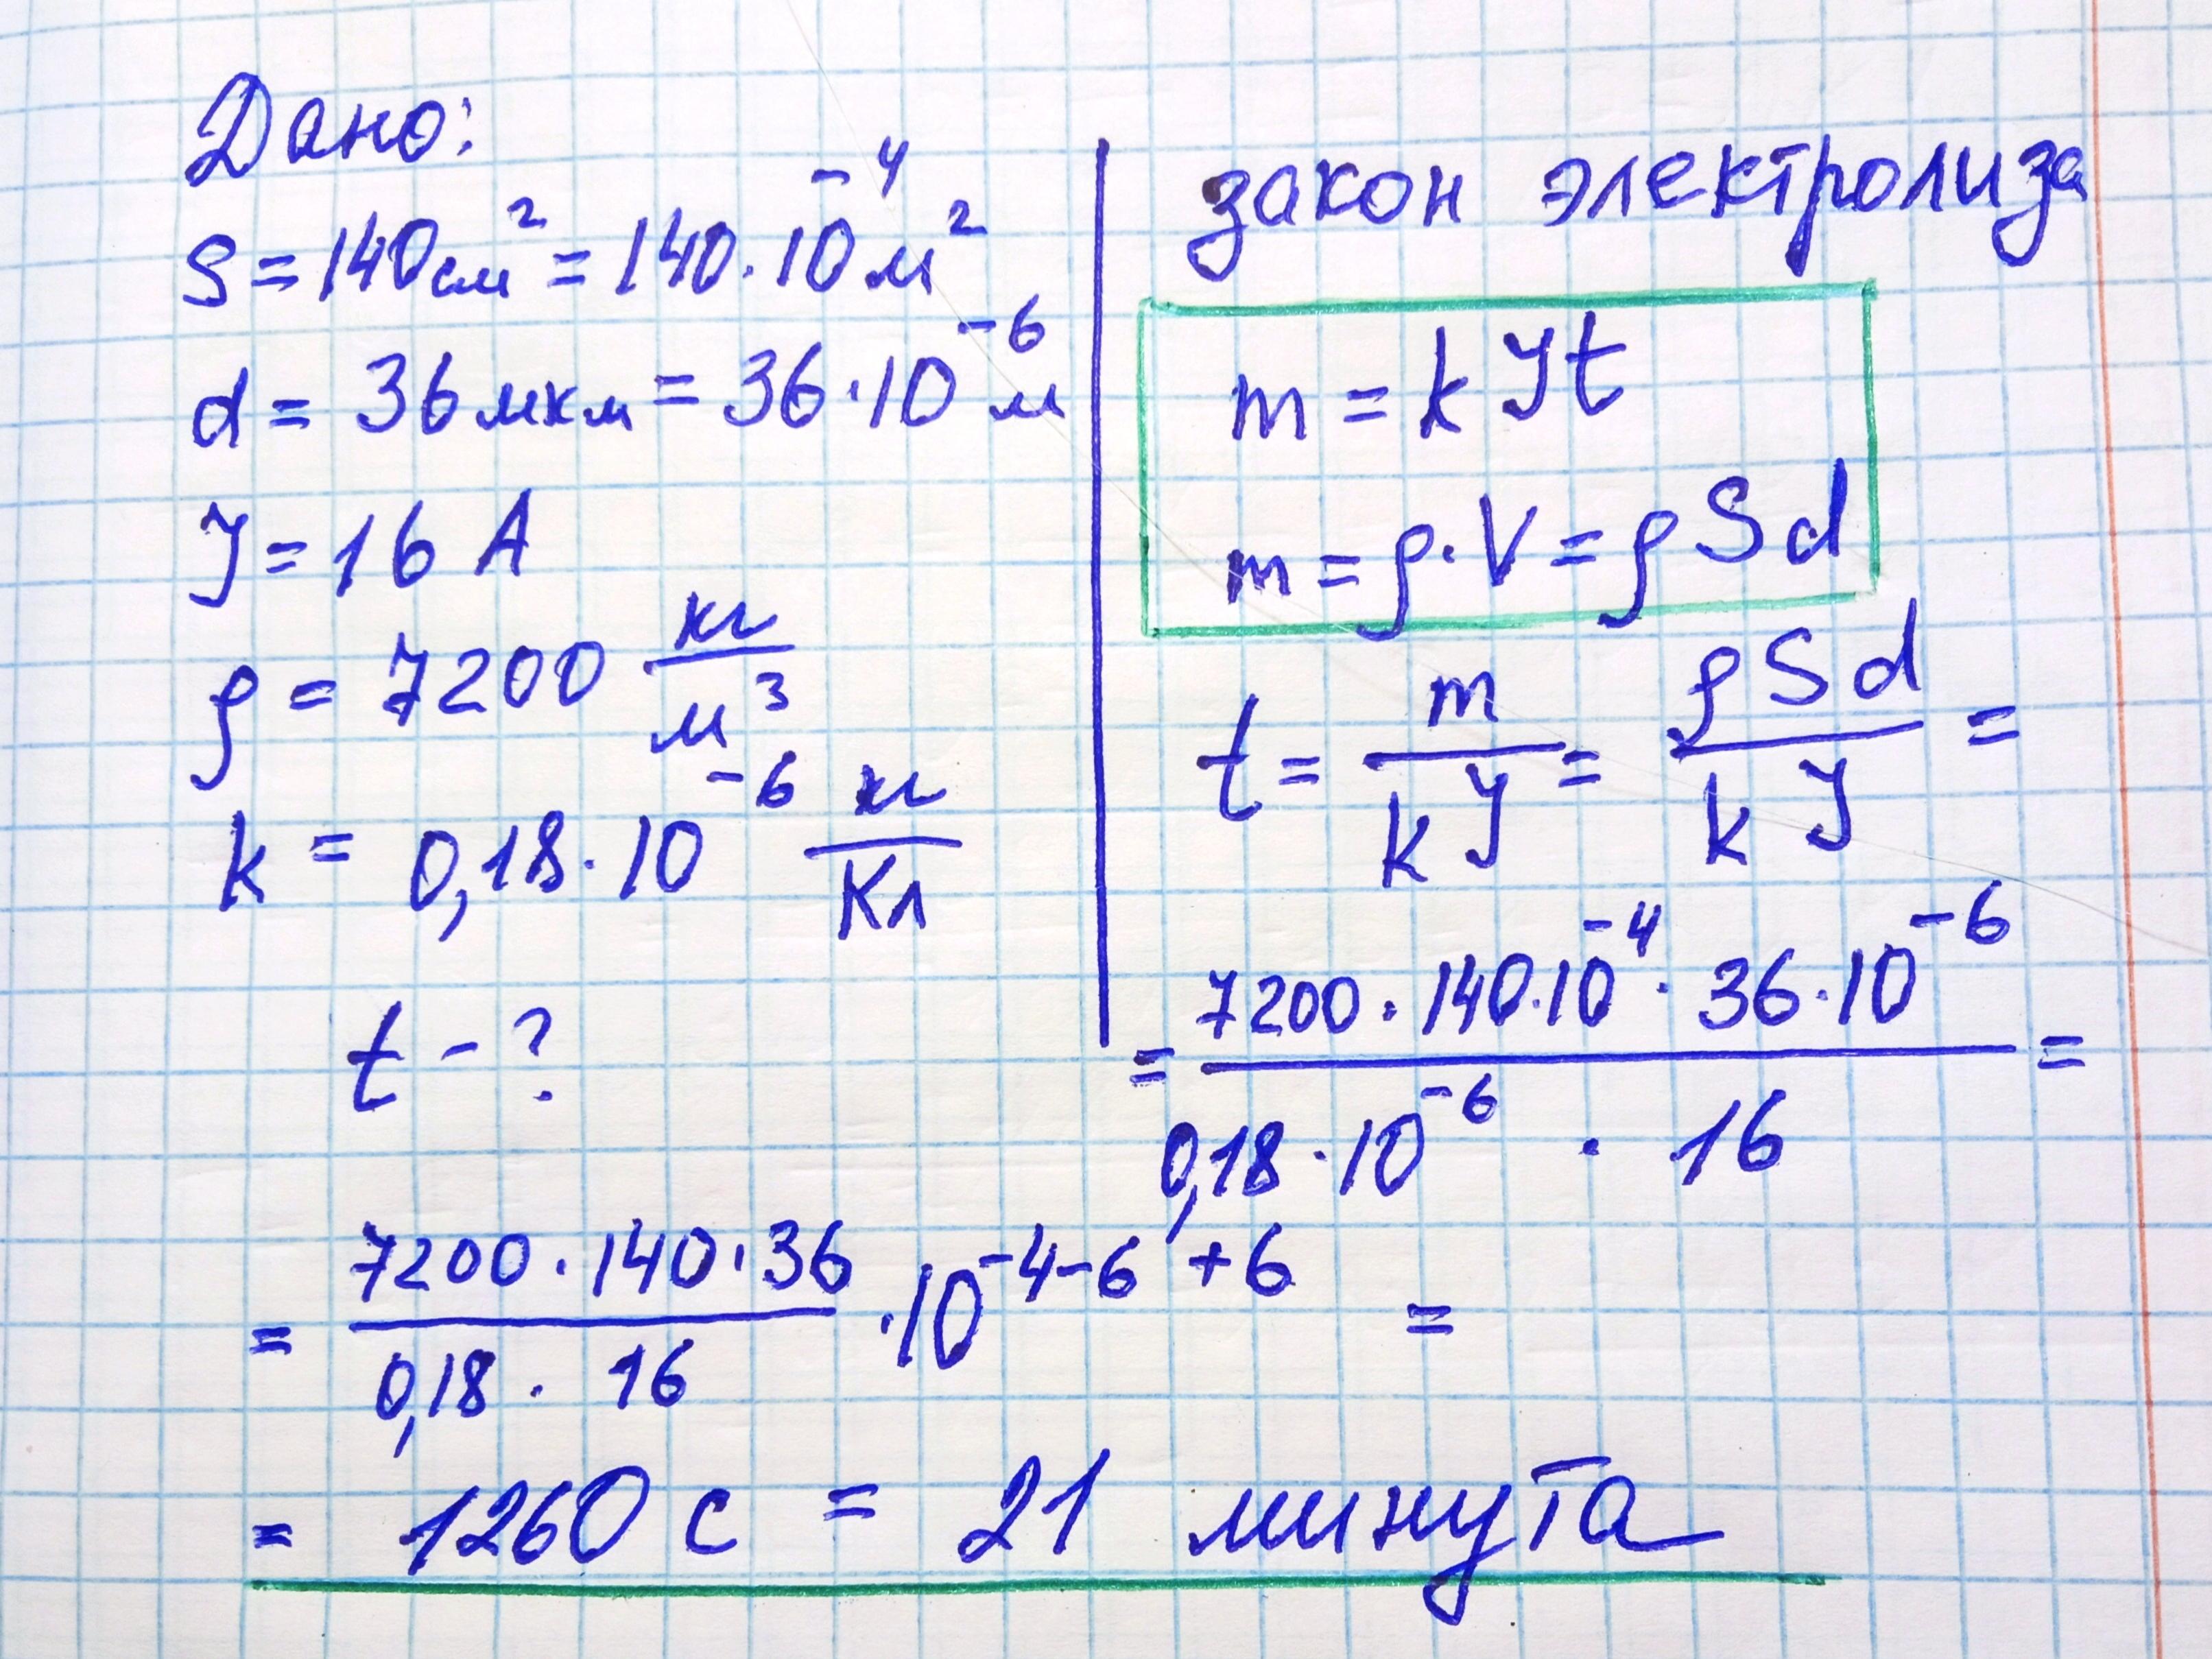 Дано:
S = 140 см² = 140·10⁻⁴ м²
d = 36 мкм = 36·10⁻⁶ м
J = 16 А
ρ = 7200 кг/м³
k = 0,18·10⁻⁶ кг/Кл
t - ?
закон электролиза
m = k J t
m = ρ·V = ρ S d
t = m/(k J) = ρ S d/(k J) =
= (7200 · 140·10⁻⁴ · 36·10⁻⁶)/(0,18·10⁻⁶ · 16) =
= (7200 · 140 · 36)/(0,18 · 16) · 10⁻⁴⁻⁶⁺⁶ =
= 1260 с = 21 минута